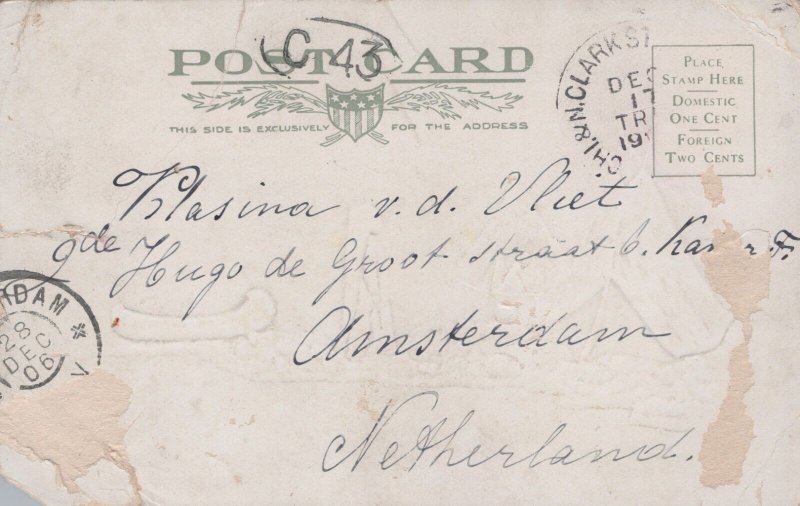 POST CARD
C 43
THIS SIDE IS EXCLUSIVELY FOR THE ADDRESS
CHI. & N. CLARK ST
DEC
17
TR
19
PLACE
STAMP HERE
DOMESTIC
ONE CENT
FOREIGN
TWO CENTS
Klasina v.d. Vliet
9de Hugo de Groot straat 6.
Amsterdam
Netherland.
RDAM *
28
DEC
06